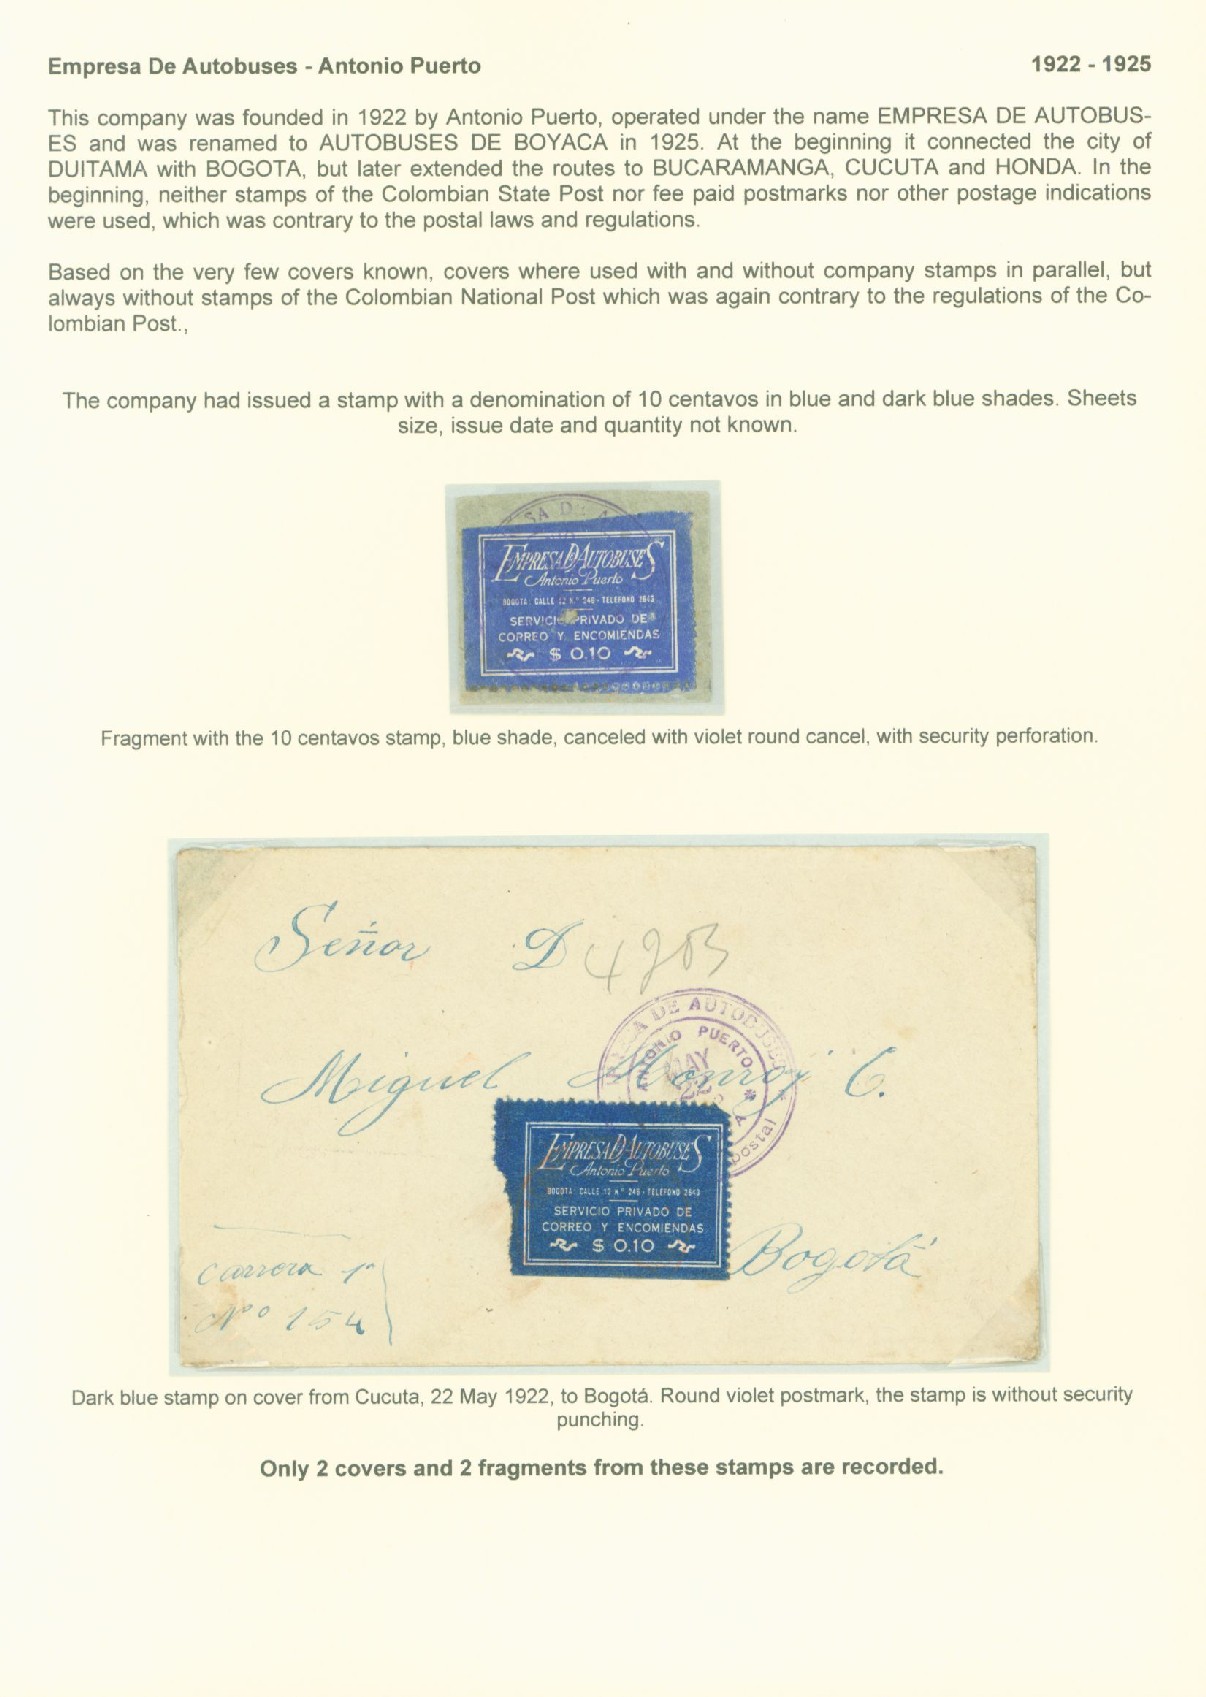 Empresa De Autobuses - Antonio Puerto 1922 - 1925
This company was founded in 1922 by Antonio Puerto, operated under the name EMPRESA DE AUTOBUS-
ES and was renamed to AUTOBUSES DE BOYACA in 1925. At the beginning it connected the city of
DUITAMA with BOGOTA, but later extended the routes to BUCARAMANGA, CUCUTA and HONDA. In the
beginning, neither stamps of the Colombian State Post nor fee paid postmarks nor other postage indications
were used, which was contrary to the postal laws and regulations.
Based on the very few covers known, covers where used with and without company stamps in parallel, but
always without stamps of the Colombian National Post which was again contrary to the regulations of the Co-
lombian Post.,
The company had issued a stamp with a denomination of 10 centavos in blue and dark blue shades. Sheets
size, issue date and quantity not known.
EMPRESA D AUTOBUSES
Antonio Puerto
BOGOTA: CALLE 12 Nº 246 - TELEFONO 2843
SERVICI PRIVADO DE
CORREO Y ENCOMIENDAS
$ 0.10
Fragment with the 10 centavos stamp, blue shade, canceled with violet round cancel, with security perforation.
Señor D 4203
DE AUTOBUSES
ANTONIO PUERTO
MAY
22
postal
Miguel Monroy C.
EMPRESA D AUTOBUSES
Antonio Puerto
BOGOTA: CALLE 12 Nº 246 - TELEFONO 2843
SERVICIO PRIVADO DE
CORREO Y ENCOMIENDAS
$ 0.10
Bogotá
Carrera 1ª
Nº 154
Dark blue stamp on cover from Cucuta, 22 May 1922, to Bogotá. Round violet postmark, the stamp is without security
punching.
Only 2 covers and 2 fragments from these stamps are recorded.